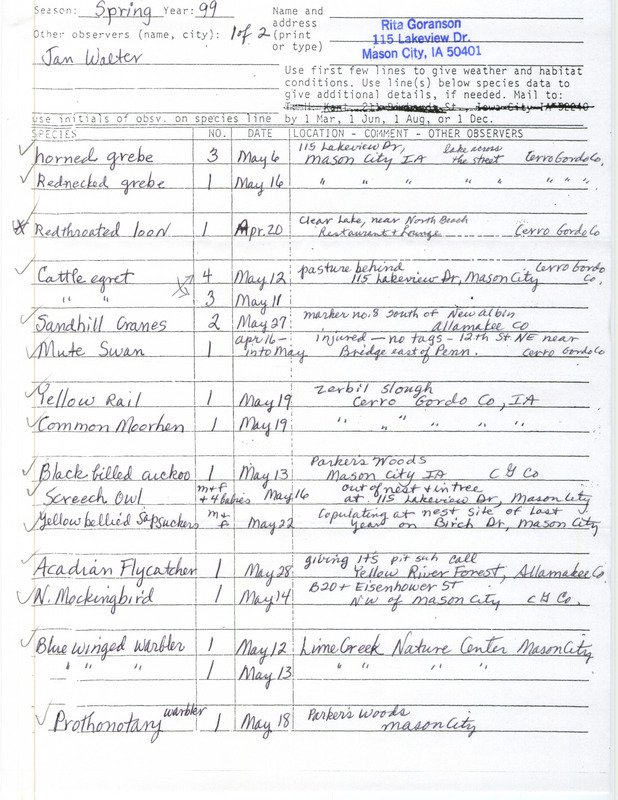 Season: Spring Year: 99 Name and
address
Other observers (name, city): 1 of 2 (print
or type)
Rita Goranson
115 Lakeview Dr.
Mason City, IA 50401
Jan Walter
Use first few lines to give weather and habitat
conditions. Use line(s) below species data to
give additional details, if needed. Mail to:
use initials of obsv. on species line by 1 Mar, 1 Jun, 1 Aug, or 1 Dec.
SPECIES NO. DATE LOCATION - COMMENT - OTHER OBSERVERS
horned grebe 3 May 6 115 Lakeview Dr, Mason City IA lake across the street Cerro Gordo Co,
Rednecked grebe 1 May 16 " " " " " " "
Redthroated loon 1 Apr. 20 Clear Lake, near North Beach Restaurant + Lounge Cerro Gordo Co
Cattle egret 4 May 12 pasture behind 115 Lakeview Dr, Mason City Cerro Gordo Co.
" " 3 May 11
Sandhill Cranes 2 May 27 marker no. 8 south of New Albin Allamakee Co
Mute Swan 1 apr 16 - into May injured - no tags - 12th St NE near Bridge east of Penn. Cerro Gordo Co
Yellow Rail 1 May 19 Zerbil Slough Cerro Gordo Co, IA
Common Moorhen 1 May 19 " " " "
Black billed cuckoo 1 May 13 Parker's Woods Mason City IA C G Co
Screech Owl m+f + 4 babies May 16 out of nest + in tree at 115 Lakeview Dr, Mason City
Yellow bellied Sapsuckers m+f May 22 Copulating at nest site of last years on Birch Dr, Mason City
Acadian Flycatcher 1 May 28 giving its pit such call Yellow River Forest, Allamakee Co.
N. Mockingbird 1 May 14 B20 + Eisenhower St NW of Mason City C G Co.
Blue winged Warbler 1 May 12 Lime Creek Nature Center Mason City
" " " 1 May 13 " " " "
Prothonotary warbler 1 May 18 Parker's Woods Mason City